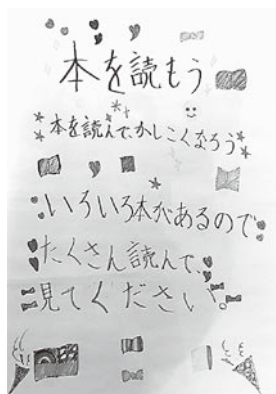 本を読もう
本を読んで、かしこくなろう
いろいろ本があるので
たくさん読んで、
見てください!。